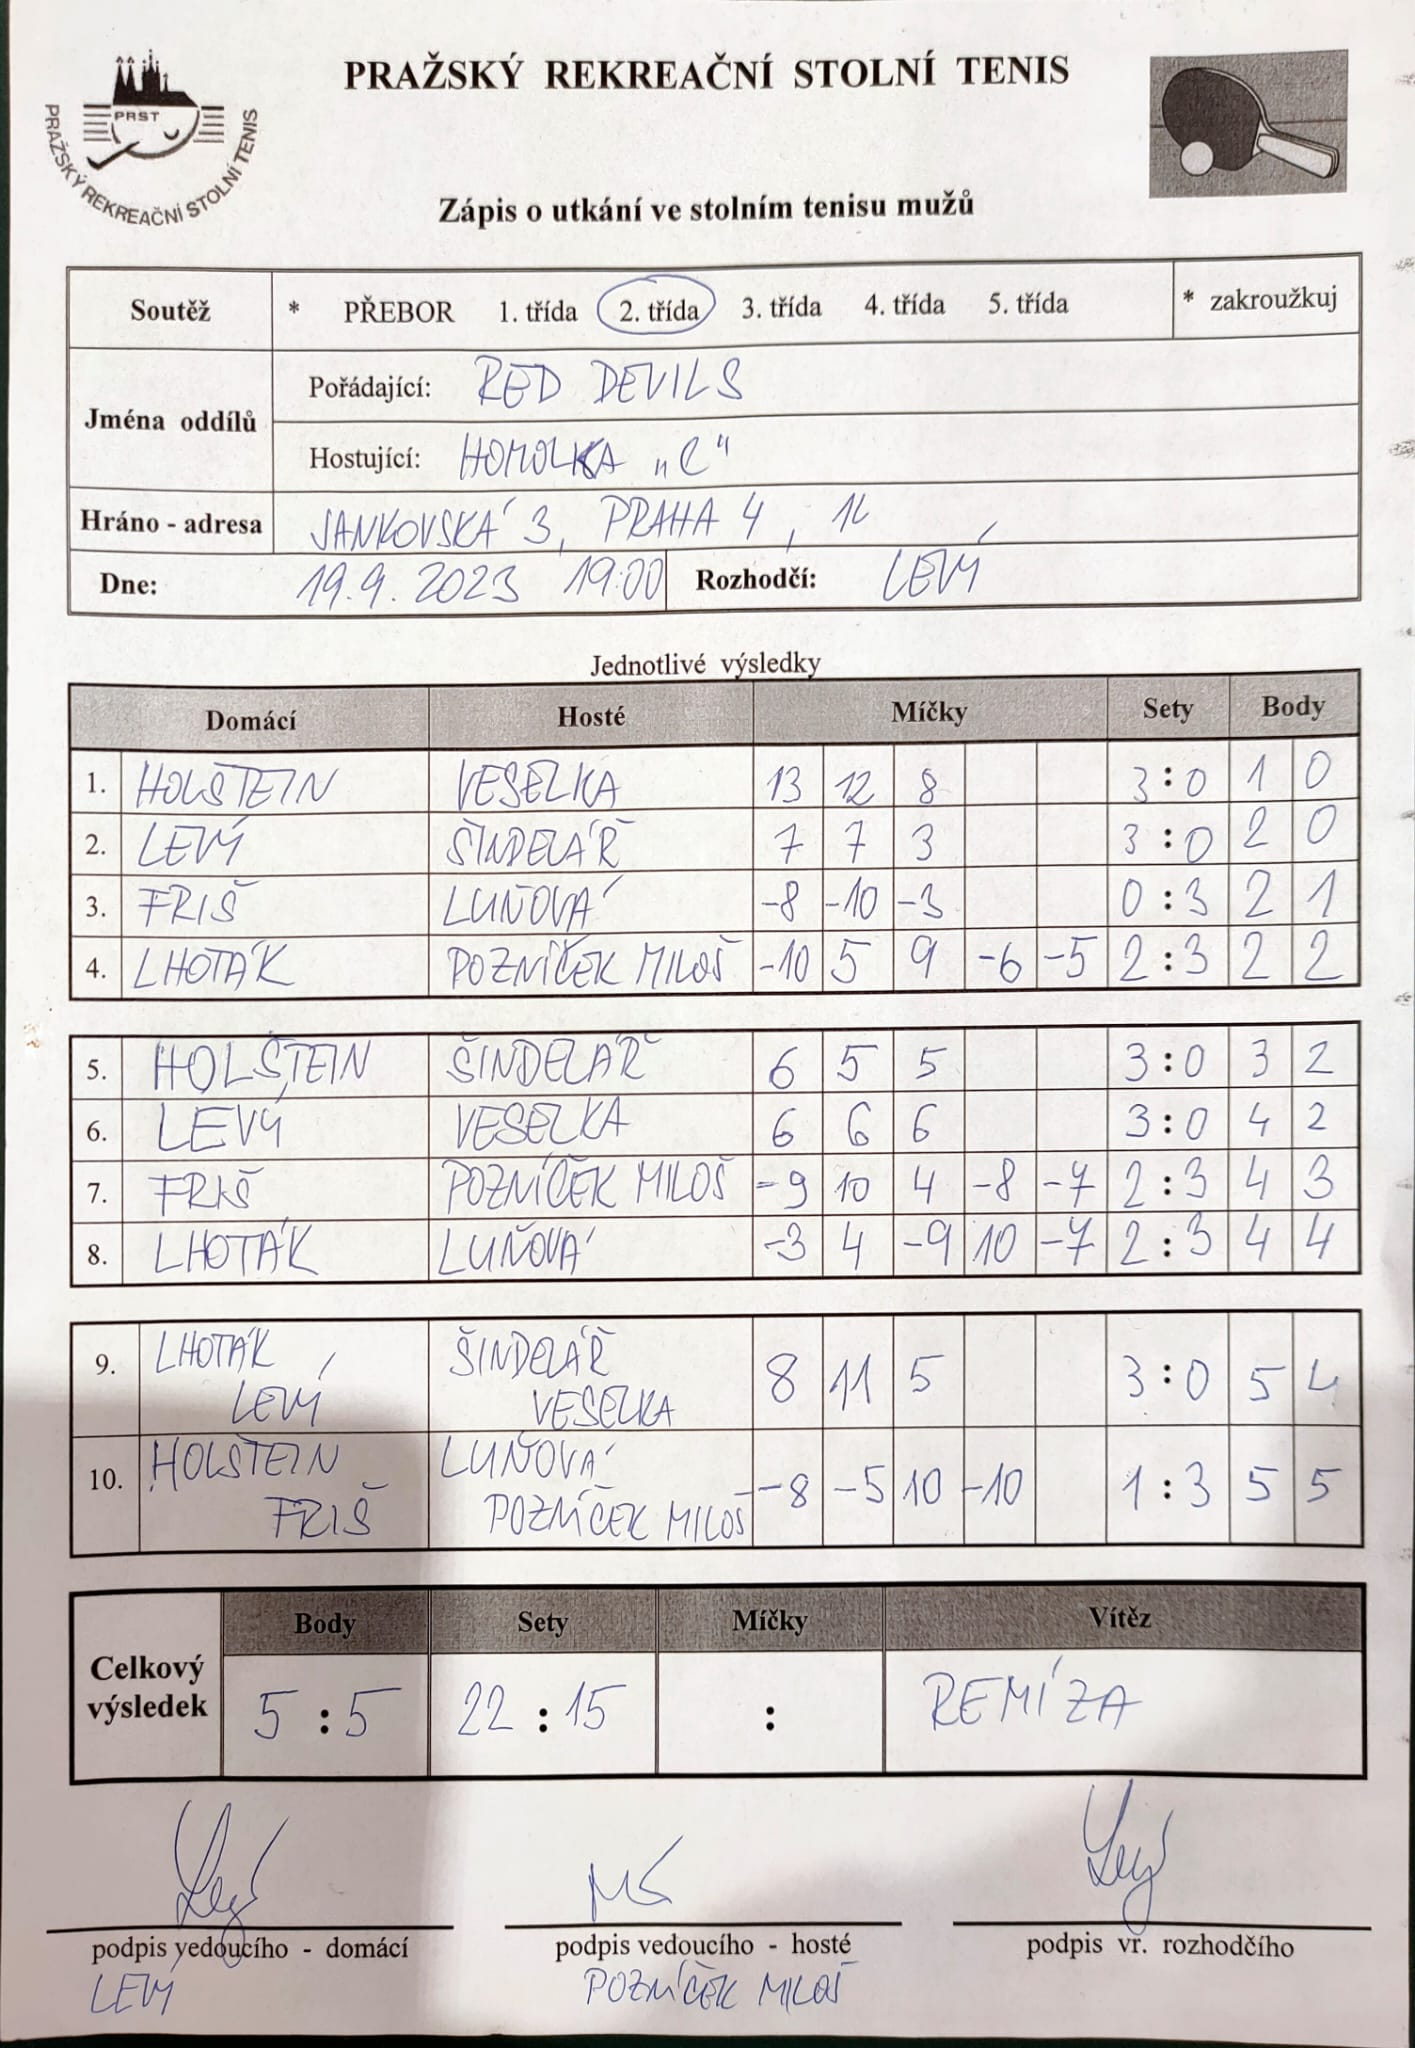 PRAŽSKÝ REKREAČNÍ STOLNÍ TENIS
PRST
PRAŽSKÝ REKREAČNÍ STOLNÍ TENIS
Zápis o utkání ve stolním tenisu mužů
Soutěž * PŘEBOR 1. třída 2. třída 3. třída 4. třída 5. třída * zakroužkuj
Jména oddílů
Pořádající: RED DEVILS
Hostující: HOMOLKA "C"
Hráno - adresa JANKOVSKÁ 3, PRAHA 4,
Dne: 19.9.2023 19:00 Rozhodčí: LEVÝ
Jednotlivé výsledky
Domácí Hosté Míčky Sety Body
1. HOLŠTEIN VESELKA 13 12 8 3:0 1 0
2. LEVÝ ŠINDELÁŘ 7 7 3 3:0 2 0
3. FRIŠ LUŇOVÁ -8 -10 -3 0:3 2 1
4. LHOTÁK POZNÍČEK MILOŠ -10 5 9 -6 -5 2:3 2 2
5. HOLŠTEIN ŠINDELÁŘ 6 5 5 3:0 3 2
6. LEVÝ VESELKA 6 6 6 3:0 4 2
7. FRIŠ POZNÍČEK MILOŠ -9 10 4 -8 -7 2:3 4 3
8. LHOTÁK LUŇOVÁ -3 4 -9 10 -7 2:3 4 4
9. LHOTÁK LEVÝ ŠINDELÁŘ VESELKA 8 11 5 3:0 5 4
10. HOLŠTEIN FRIŠ LUŇOVÁ POZNÍČEK MILOŠ -8 -5 10 -10 1:3 5 5
Body Sety Míčky Vítěz
Celkový výsledek 5:5 22:15 : REMÍZA
podpis vedoucího - domácí podpis vedoucího - hosté podpis vr. rozhodčího
LEVÝ POZNÍČEK MILOŠ